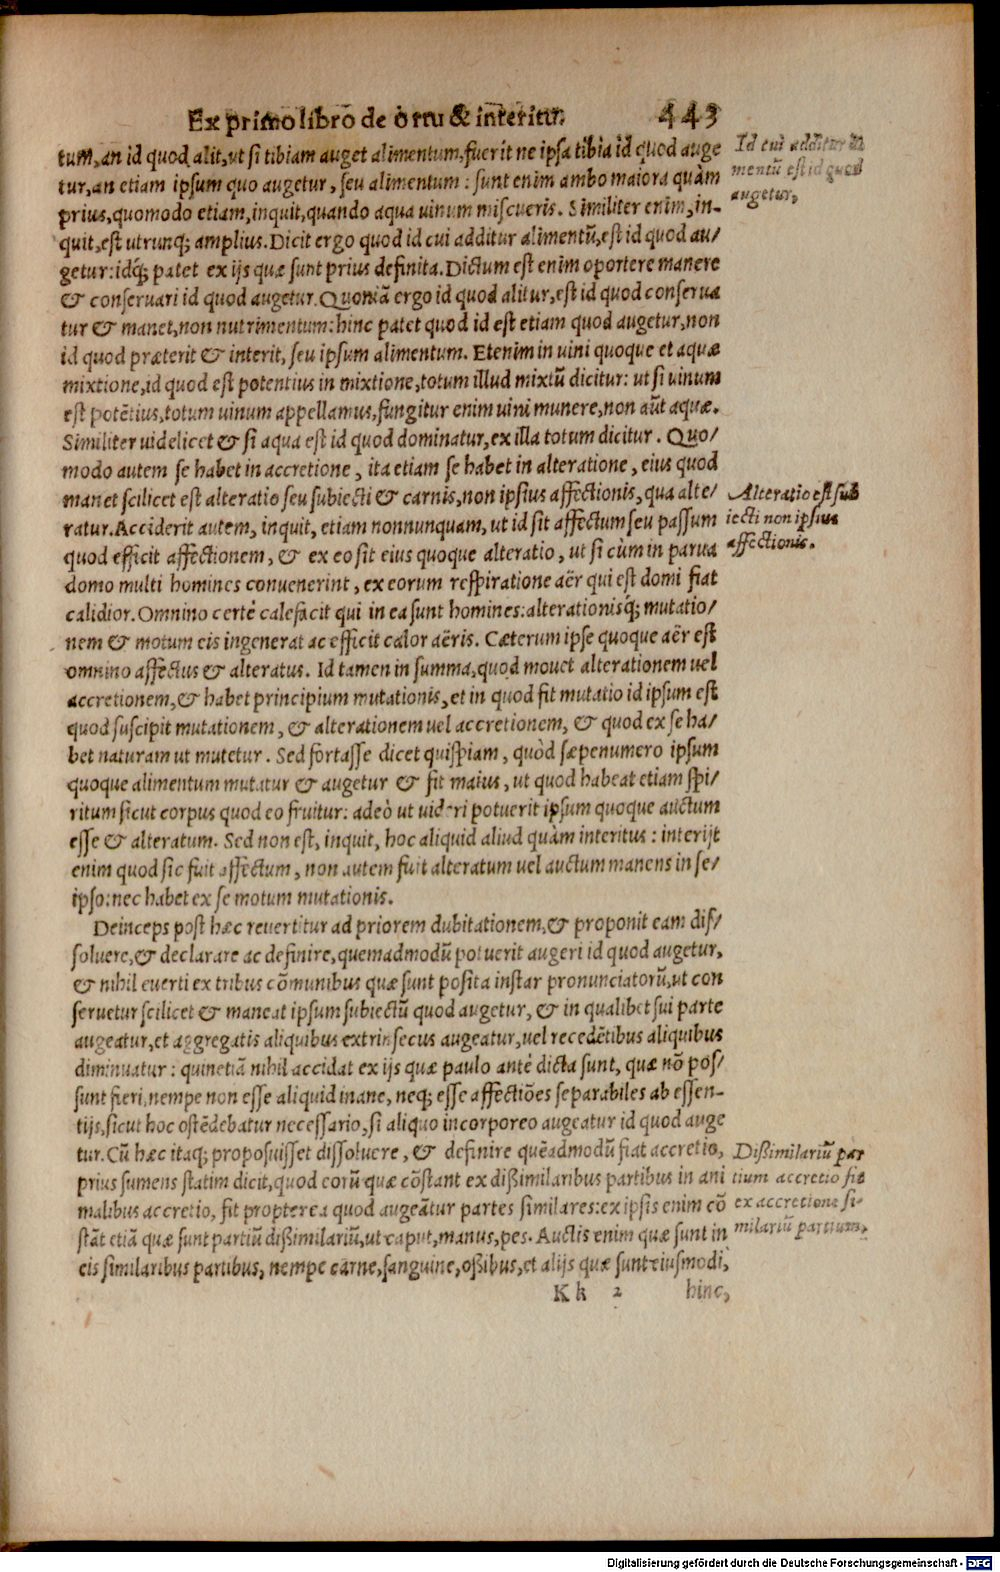 Ex primo libro de ortu & interitu. 443
tum, an id quod alit, ut si tibiam auget alimentum, fuerit ne ipsa tibia id quod auge
tur, an etiam ipsum quo augetur, seu alimentum: sunt enim ambo maiora quàm
prius, quomodo etiam, inquit, quando aqua uinum miscueris. Similiter enim, in-
quit, est utrunq; amplius. Dicit ergo quod id cui additur alimentũ, est id quod au/
getur: idq́; patet ex ijs quæ sunt prius definita. Dictum est enim oportere manere
& conseruari id quod augetur. Quoniã ergo id quod alitur, est id quod conserua
tur & manet, non nutrimentum: hinc patet quod id est etiam quod augetur, non
id quod præterit & interit, seu ipsum alimentum. Etenim in uini quoque et aquæ
mixtione, id quod est potentius in mixtione, totum illud mixtũ dicitur: ut si uinum
est potẽtius, totum uinum appellamus, fungitur enim uini munere, non aũt aquæ.
Similiter uidelicet & si aqua est id quod dominatur, ex illa totum dicitur. Quo/
modo autem se habet in accretione, ita etiam se habet in alteratione, eius quod
manet scilicet est alteratio seu subiecti & carnis, non ipsius affectionis, qua alte/
ratur. Acciderit autem, inquit, etiam nonnunquam, ut id sit affectum seu passum
quod efficit affectionem, & ex eo sit eius quoque alteratio, ut si cùm in parua
domo multi homines conuenerint, ex eorum respiratione aër qui est domi fiat
calidior. Omnino certè calefacit qui in ea sunt homines: alterationisq́; mutatio/
nem & motum eis ingenerat ac efficit calor aëris. Cæterum ipse quoque aër est
omnino affectus & alteratus. Id tamen in summa, quod mouet alterationem uel
accretionem, & habet principium mutationis, et in quod fit mutatio id ipsum est
quod suscipit mutationem, & alterationem uel accretionem, & quod ex se ha/
bet naturam ut mutetur. Sed fortasse dicet quispiam, quòd sæpenumero ipsum
quoque alimentum mutatur & augetur & fit maius, ut quod habeat etiam spi/
ritum sicut corpus quod eo fruitur: adeò ut uideri potuerit ipsum quoque auctum
esse & alteratum. Sed non est, inquit, hoc aliquid aliud quàm interitus: interijt
enim quod sic fuit affectum, non autem fuit alteratum uel auctum manens in se/
ipso: nec habet ex se motum mutationis.
Deinceps post hæc reuertitur ad priorem dubitationem, & proponit eam dis/
soluere, & declarare ac definire, quemadmodũ potuerit augeri id quod augetur,
& nihil euerti ex tribus cõmunibus quæ sunt posita instar pronunciatorũ, ut con
seruetur scilicet & maneat ipsum subiectũ quod augetur, & in qualibet sui parte
augeatur, et aggregatis aliquibus extrinsecus augeatur, uel recedẽtibus aliquibus
diminuatur: quinetiã nihil accidat ex ijs quæ paulo antè dicta sunt, quæ nõ pos/
sunt fieri, nempe non esse aliquid inane, neq; esse affectiões separabiles ab essen-
tijs, sicut hoc ostẽdebatur necessario, si aliquo incorporeo augeatur id quod auge
tur. Cũ hæc itaq; proposuisset dissoluere, & definire quẽadmodũ fiat accretio,
prius sumens statim dicit, quod eorũ quæ cõstant ex dißimilaribus partibus in ani
malibus accretio, fit propterea quod augeãtur partes similares: ex ipsis enim cõ
stãt etiã quæ sunt partiũ dißimilariũ, ut caput, manus, pes. Auctis enim quæ sunt in
eis similaribus partibus, nempe carne, sanguine, oßibus, et alijs quæ sunt eiusmodi,
Kk 2 hinc,
Id cui additur ali
mentũ est id quod
augetur.
Alteratio est sub
iecti non ipsius
affectionis.
Dißimilariũ par
tium accretio fit
ex accretione si-
milariũ partium.
Digitalisierung gefördert durch die Deutsche Forschungsgemeinschaft - DFG